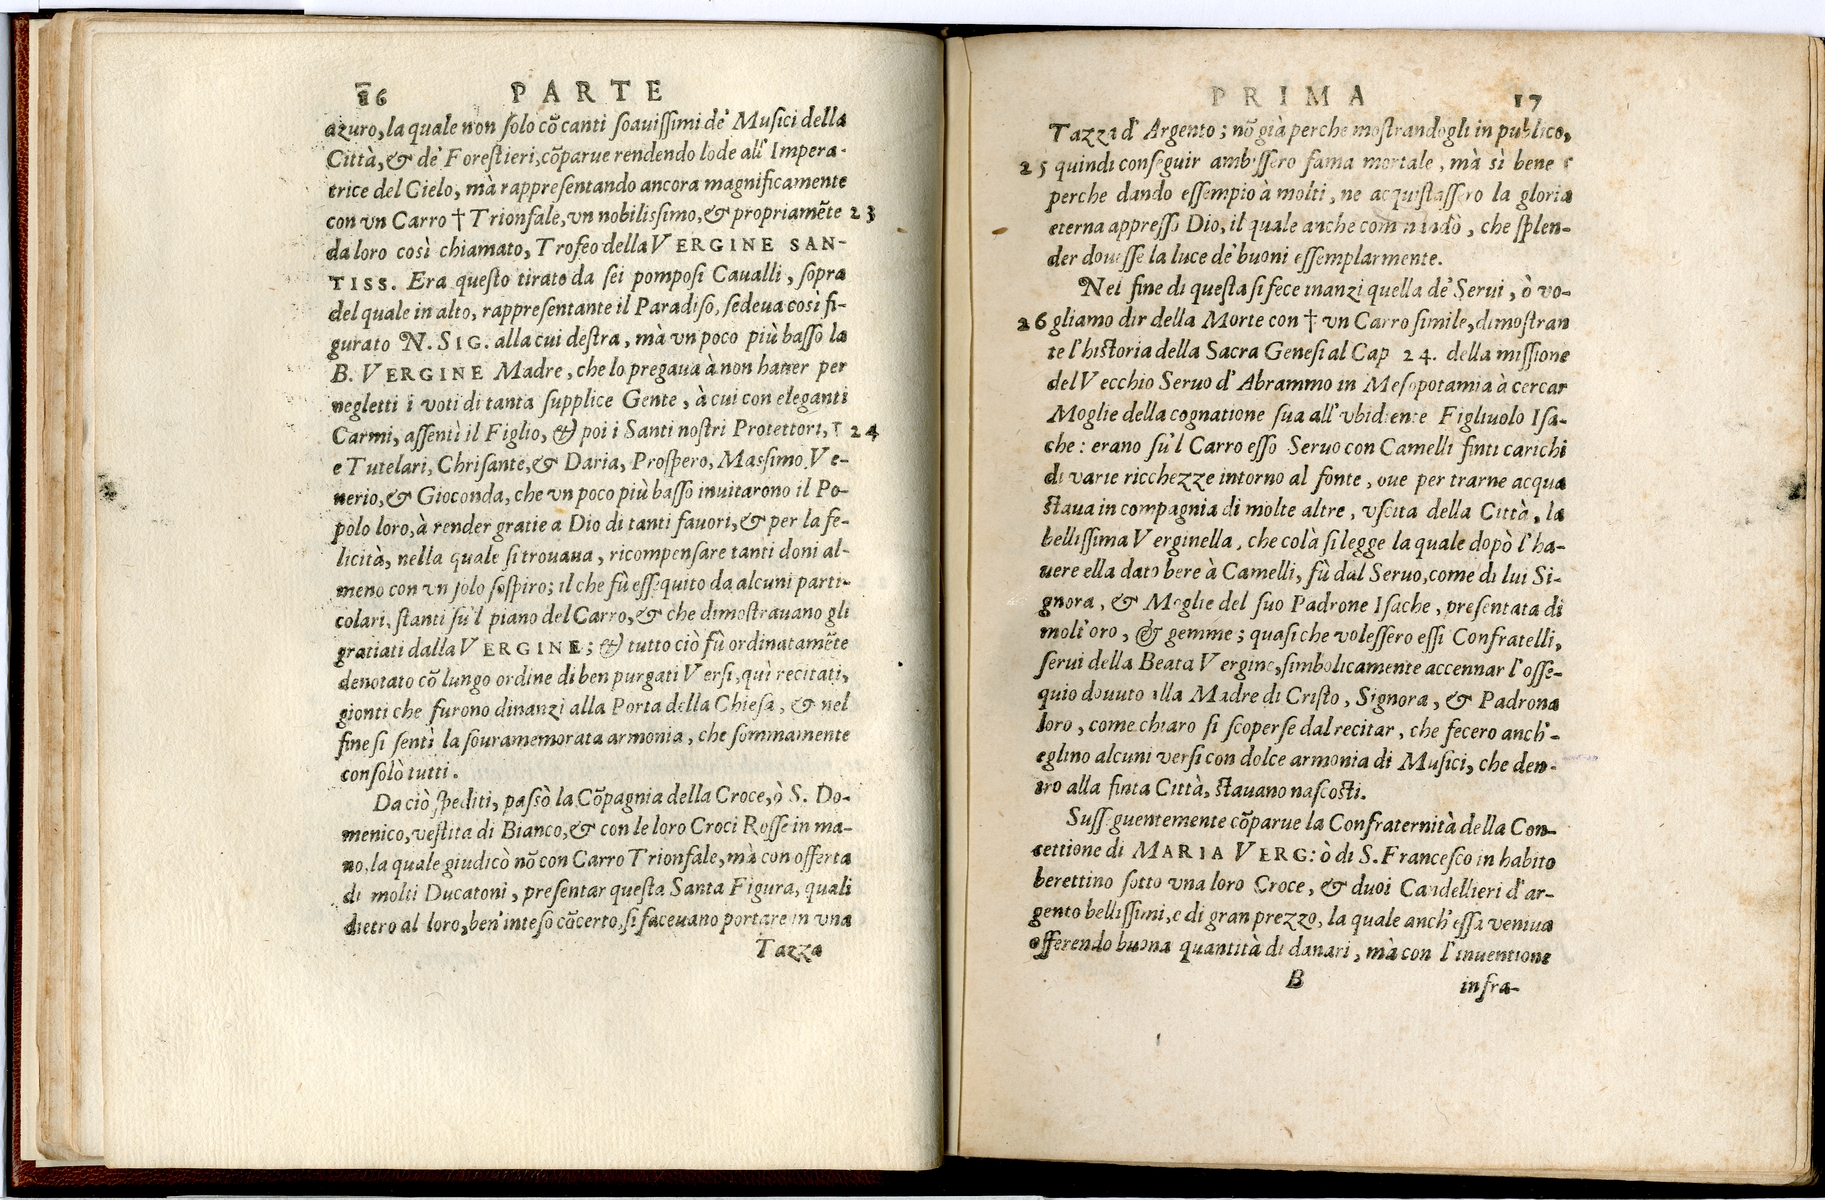 16 PARTE
azuro, la quale non ſolo cõ canti ſoauiſſimi de' Muſici della
Città, & de' Foreſtieri, cõparue rendendo lode all' Impera-
trice del Cielo, mà rappreſentando ancora magnificamente
con vn Carro † Trionfale, vn nobilisſimo, & propriamẽte 23
da loro così chiamato, Trofeo della VERGINE SAN-
TISS. Era queſto tirato da ſei pompoſi Caualli, ſopra
del quale in alto, rappreſentante il Paradiſo, ſedeua così fi-
gurato N. SIG. alla cui deſtra, mà vn poco più baſſo la
B. VERGINE Madre, che lo pregaua à non hauer per
negletti i voti di tanta ſupplice Gente, à cui con eleganti
Carmi, aſſentì il Figlio, & poi i Santi noſtri Protettori, † 24
e Tutelari, Chriſante, & Daria, Proſpero, Masſimo, Ve-
nerio, & Gioconda, che vn poco più baſſo inuitarono il Po-
polo loro, à render gratie a Dio di tanti fauori, & per la fe-
licità, nella quale ſi trouaua, ricompenſare tanti doni al-
meno con vn ſolo ſoſpiro; il che fù eſſequito da alcuni parti-
colari, ſtanti ſu'l piano del Carro, & che dimoſtrauano gli
gratiati dalla VERGINE; & tutto ciò fù ordinatamẽte
denotato cõ lungo ordine di ben purgati Verſi, quì recitati,
gionti che furono dinanzi alla Porta della Chieſa, & nel
fine ſi sentì la ſouramemorata armonia, che ſommamente
conſolò tutti.
Da ciò ſpediti, paſsò la Cõpagnia della Croce, ò S. Do-
menico, veſtita di Bianco, & con le loro Croci Roſſe in ma-
no, la quale giudicò nõ con Carro Trionfale, mà con offerta
di molti Ducatoni, preſentar queſta Santa Figura, quali
dietro al loro, ben' inteſo cõcerto, ſi faceuano portare in vna
Tazza
PRIMA 17
Tazza d' Argento; nõ già perche moſtrandogli in publico,
25 quindi conſeguir ambiſſero fama mortale, mà sì bene
perche dando eſſempio à molti, ne acquiſtaſſero la gloria
eterna appreſſo Dio, il quale anche commandò, che ſplen-
der doueſſe la luce de' buoni eſſemplarmente.
Nel fine di queſta ſi fece inanzi quella de' Serui, ò vo-
26 gliamo dir della Morte con † vn Carro ſimile, dimoſtran
te l'hiſtoria della Sacra Geneſi al Cap 24. della miſſione
del Vecchio Seruo d' Abrammo in Meſopotamia à cercar
Moglie della cognatione ſua all' vbidente Figliuolo Iſa-
che: erano ſu'l Carro eſſo Seruo con Camelli finti carichi
di varie ricchezze intorno al fonte, oue per trarne acqua
ſtaua in compagnia di molte altre, vſcita della Città, la
belliſſima Verginella, che colà ſi legge la quale dopò l'ha-
uere ella dato bere à Camelli, fù dal Seruo, come di lui Si-
gnora, & Moglie del ſuo Padrone Iſache, preſentata di
molt' oro, & gemme; quaſi che voleſſero eſſi Confratelli,
ſerui della Beata Vergine, ſimbolicamente accennar l'oſſe-
quio douuto alla Madre di Criſto, Signora, & Padrona
loro, come chiaro ſi ſcoperse dal recitar, che fecero anch'-
eglino alcuni verſi con dolce armonia di Muſici, che den-
tro alla finta Città, ſtauano naſcoſti.
Suſſeguentemente cõparue la Confraternità della Con-
cettione di MARIA VERG: ò di S. Franceſco in habito
berettino ſotto vna loro Croce, & duoi Candellieri d'ar-
gento belliſſimi, e di gran prezzo, la quale anch' eſſa veniua
offerendo buona quantità di danari, mà con l'inuentione
B infra-